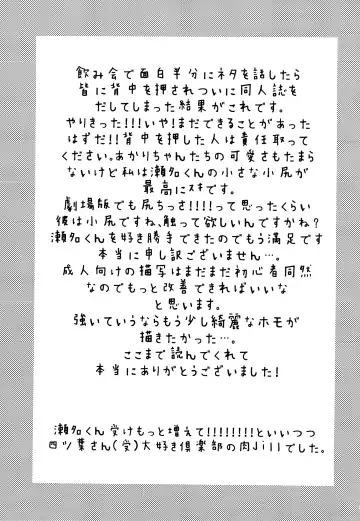 飲み会で面白半分にネタを話したら
皆に背中を押されついに同人誌を
だしてしまった結果がこれです。
やりきった!!!いや!まだできることがあった
はずだ!!背中を押した人は責任取って
ください。あかりちゃんたちの可愛さもたまら
ないけど私は瀬名くんの小さな小尻が
最高にスキです。
劇場版でも尻ちっさ!!!!って思ったくらい
彼は小尻ですね、触って欲しいんですかね?
瀬名くんを好き勝手できたのでもう満足です
本当に申し訳ございません…。
成人向けの描写はまだまだ初心者同然
なのでもっと改善できればいいな
と思います。
強いていうならもう少し綺麗なホモが
描きたかった…。
ここまで読んでくれて
本当にありがとうございました!
瀬名くん受けもっと増えて!!!!!!!!といいつつ
四ツ葉さん(受)大好き倶楽部の肉Jillでした。